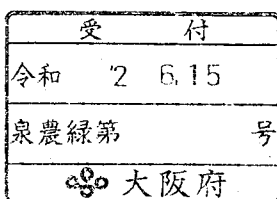 受付
令和 '2 6.15
泉農緑第 号
大阪府